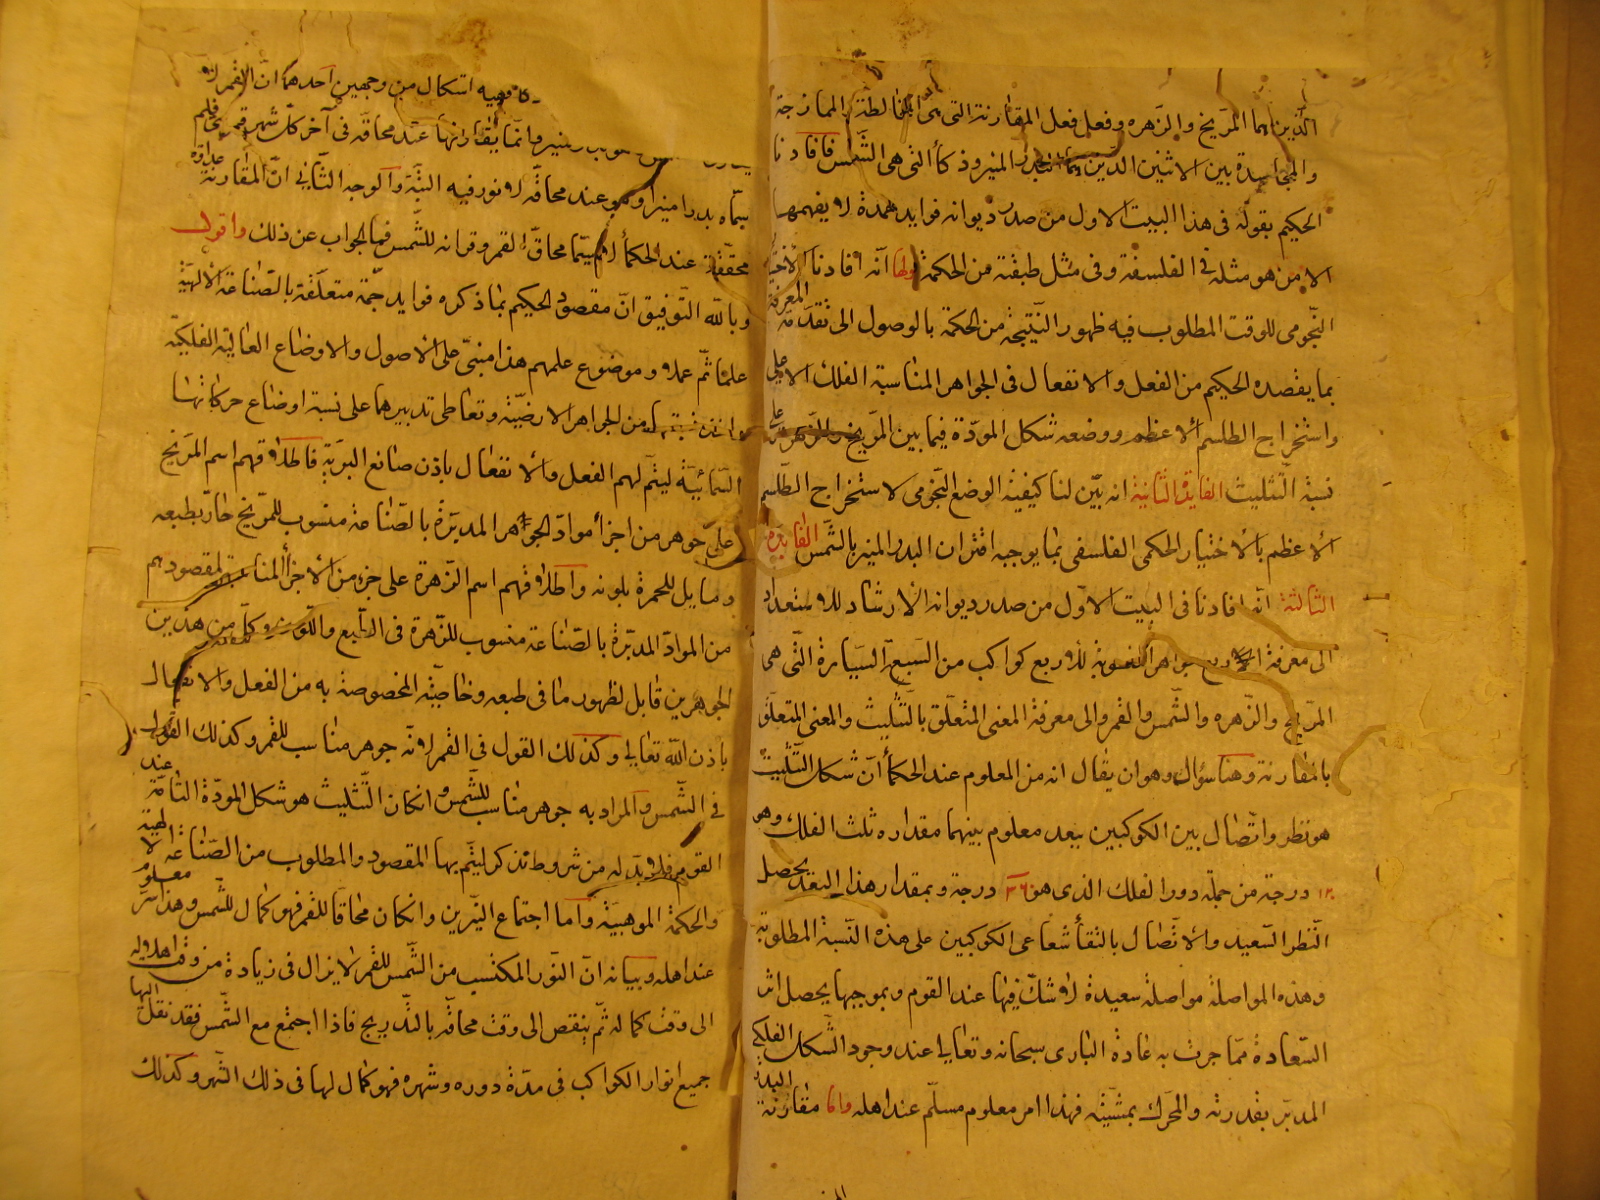 الذين هما المريخ والزهره وفعل فعل المقارنة التى هى المخالطة الممازجة
والمجاسدة بين الاثنين الذين هما البدر المنير وذكأ التى هى الشمس فافادنا
الحكيم بقوله فى هذا البيت الاول من صدر ديوانه فوايد عدة لا يفهمها
الا من هو مثله فى الفلسفة وفى مثل طبقته من الحكمة اولها انه افادنا الاختيار
النجومى للوقت المطلوب فيه ظهور النتيجة من الحكمة بالوصول الى تقدمة المعرفة
بما يقصده الحكيم من الفعل والانفعال فى الجواهر المناسبة الفلك الاعلى
واستخراج الطلسم الاعظم ووضعه شكل المودة فيما بين المريخ والزهره على
نسبة التثليث الفايدة الثانية انه بين لنا كيفية الوضع النجومى لاستخراج الطلسم
الاعظم بالاختيار الحكمى الفلسفى بما يوجبه اقتران البدر المنير بالشمس الفايدة
الثالثة انه افادنا فى البيت الاول من صدر ديوانه الارشاد للاستعداد
الى معرفة الاربع جواهر المنسوبة للاربع كواكب من السبعة السيارة التى هى
المريخ والزهره والشمس والقمر والى معرفة المعنى المتعلق بالتثليث والمعنى المتعلق
بالمقارنة وهنا سؤال وهو ان يقال انه من المعلوم عند الحكمأ ان شكل التثليث
هو نظر واتصال بين الكوكبين ببعد معلوم بينهما مقداره ثلث الفلك وهو
١٢٠ درجة من جملة دور الفلك الذى هو ٣٦٠ درجة وبمقدار هذا البعد يحصل
النظر السعيد والاتصال بالتقأ شعاعى الكوكبين على هذه النسبة المطلوبة
وهذه المواصلة مواصلة سعيدة لا شك فيها عند القوم وبموجبها يحصل اثر
السعادة مما جرت به عادة البارى سبحانه وتعالى عند وجود الشكل الفلكى
المدبر بقدرته والمحرك بمشيئته فهذا امر معلوم مسلم عند اهله واما مقارنة البدر
فيه اشكال من وجهين احدهما ان القمر لا
منير وانما يقارنها عند محاقه فى آخر كل شهر قمرى فلم
سماه بدرا منيرا وهو عند محاقه لا نور فيه البتة والوجه الثانى ان المقارنة عداوة
محققة عند الحكمأ لا سيما محاق القمر وقرانه للشمس فما الجواب عن ذلك واقول
وبالله التوفيق ان مقصود الحكيم بما ذكره فوايد جمة متعلقة بالصناعة الالهية
علما ثم عملا وموضوع علمهم هذا مبنى على الاصول والاوضاع العالية الفلكية
من الجواهر الارضية وتعاطى تدبيرها على نسبة اوضاع حركاتها
السمائية ليتم لهم الفعل والانفعال باذن صانع البرية فاطلاقهم اسم المريخ
على جوهر من اجزأ مواد الجواهر المدبرة بالصناعة منسوب للمريخ حار بطبعه
ومايل للحمرة بلونه واطلاقهم اسم الزهرة على جزء من الاجزأ المناسبة لمقصودهم
من المواد المدبرة بالصناعة منسوب للزهرة فى الطبع واللون وكل من هذين
الجوهرين قابل لظهور ما فى طبعه وخاصيته المخصوصة به من الفعل والانفعال
باذن الله تعالى وكذلك القول فى القمر لانه جوهر مناسب للقمر وكذلك القول
فى الشمس والمراد به جوهر مناسب للشمس وانكان التثليث هو شكل المودة التامة عند
القوم فلا بد له من شروط تذكر ليتم بها المقصود والمطلوب من الصناعة الالهية
والحكمة الموهبية واما اجتماع النيرين وانكان محاقا للقمر فهو كمال للشمس وهذا سر معلوم
عند اهله وبيانه ان النور المكتسب من الشمس للقمر لا يزال فى زيادة من وقت اهلاله
الى وقت كماله ثم ينقص الى وقت محاقه بالتدريج فاذا اجتمع مع الشمس فقد نقل اليها
جميع انوار الكواكب فى مدة دوره وشهره فهو كمال لها فى ذلك الشهر وكذلك